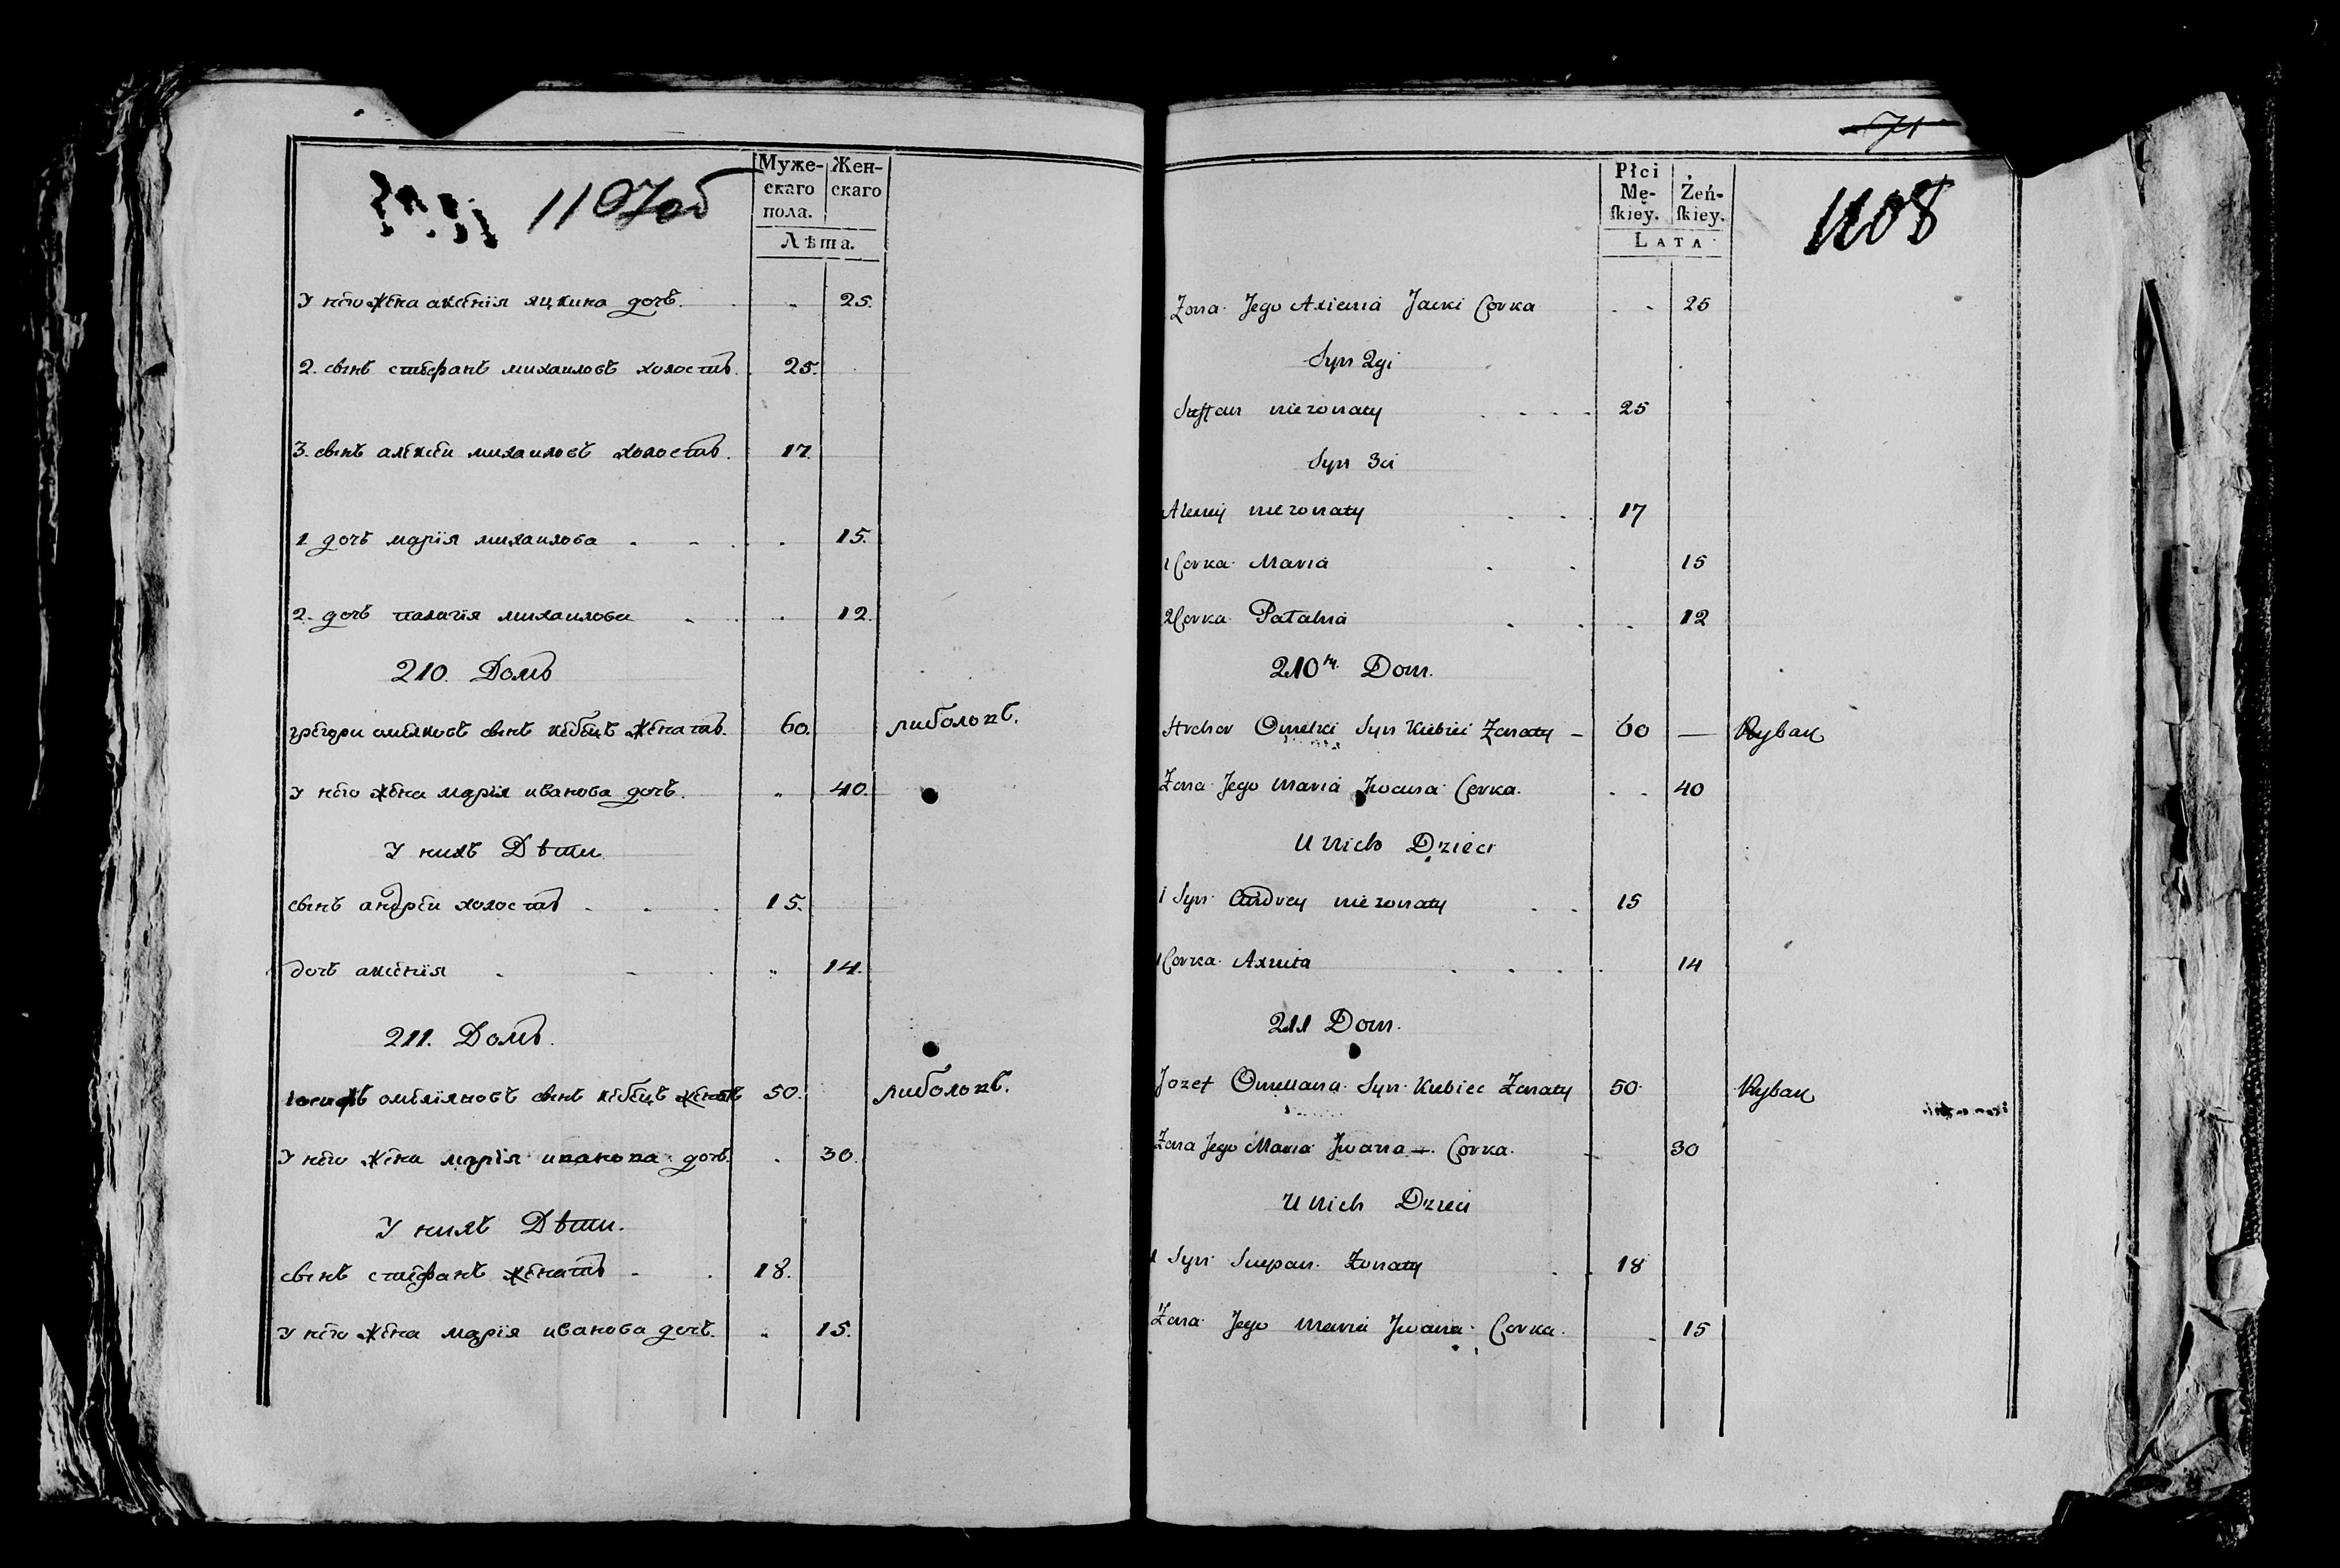 1107об
Муже-
скаго
пола.
Жен-
скаго
Лѣта.
У него жена аксенія яцкина дочь. 25.
2. сынъ стефанъ михаиловъ холостъ. 25.
3. сынъ алексеи михаиловъ холостъ. 17.
1 дочь марія михаилова 15.
2. дочь палагія михаилова 12.
210. Домъ
грегори омелковъ сынъ кебецъ женатъ. 60. риболовъ.
У него жена марія иванова дочь. 40.
У нихъ Дѣти
сынъ андреи холостъ 15.
дочь аксенія 14.
211. Домъ.
сынъ кебецъ женатъ 50. риболовъ.
У него жена марія иванова дочь. 30.
У нихъ Дѣти.
сынъ стефанъ женатъ 18.
У него жена марія иванова дочь. 15.
71
1108
Płci
Mę-
ſkiey.
Żeń-
ſkiey.
LATA
Zona Jego Axienia Jacki Corka 25
Syn 2gi
Steffan niezonaty 25
Syn 3ci
Alexiy niezonaty 17
1 Corka Maria 15
2 Corka Patalna 12
210ty. Dom.
Hrehor Omelki Syn Kiebiec Zonaty – 60 — Rybak
Zona Jego Maria Jwana Corka. 40
U Nich Dzieci
1 Syn Andrey niezonaty 15
1 Corka Axinta 14
211 Dom.
Jozef Omeliana Syn Kiebiec Zonaty 50 Rybak
Zona Jego Maria Jwana – Corka. 30
U Nich Dzieci
1 Syn Stepan Zonaty 18
Zona Jego Maria Jwana Corka. 15